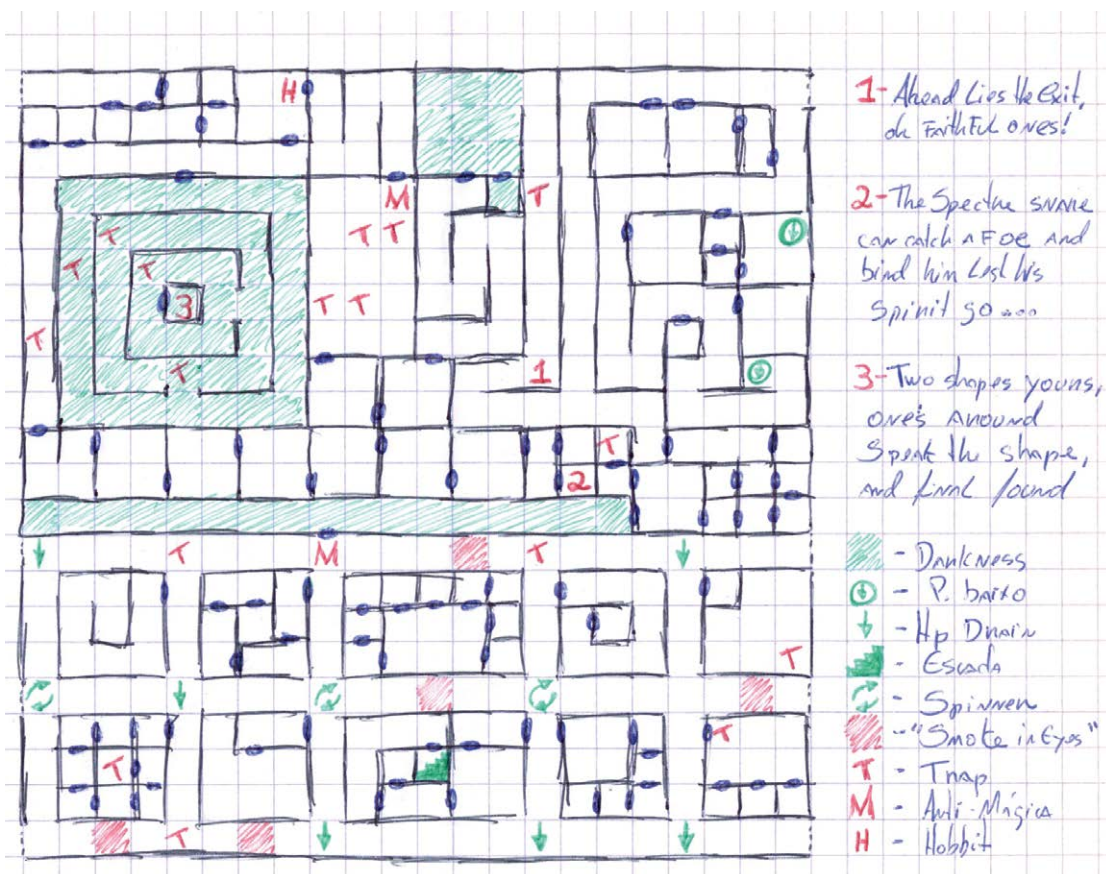 H
M T
T T T
T T
3 T T
T
T 1
T
2
T M T
T
T
T
T
1- Ahead Lies the Exit,
oh FaithFul ones!
2- The Spectre snare
can catch a FOE and
bind him Lest his
Spirit go ...
3- Two shapes yours,
one's Around
Speak the shape,
and final found
- Darkness
- P. baixo
- Hp Drain
- Escada
- Spinner
- "Smoke in Eyes"
T - Trap
M - Anti-Mágica
H - Hobbit